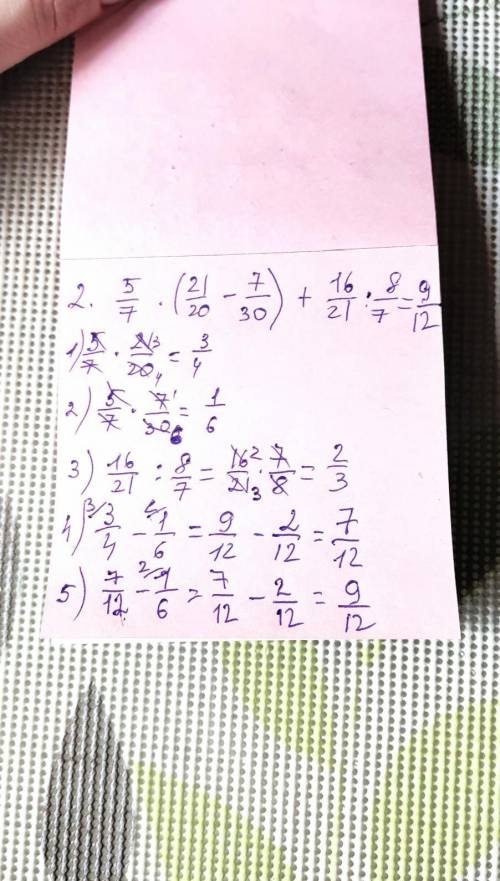 2. 5/7 · (21/20 - 7/30) + 16/21 : 8/7 = 9/12
1) 5/7 · 21 3/20 4 = 3/4
2) 5/7 · 7 1/30 6 = 1/6
3) 16/21 : 8/7 = 16 2/21 3 · 7/8 = 2/3
4) 3/ 3/4 - 2/ 1/6 = 9/12 - 2/12 = 7/12
5) 7/12 - 2/ 1/6 = 7/12 - 2/12 = 9/12